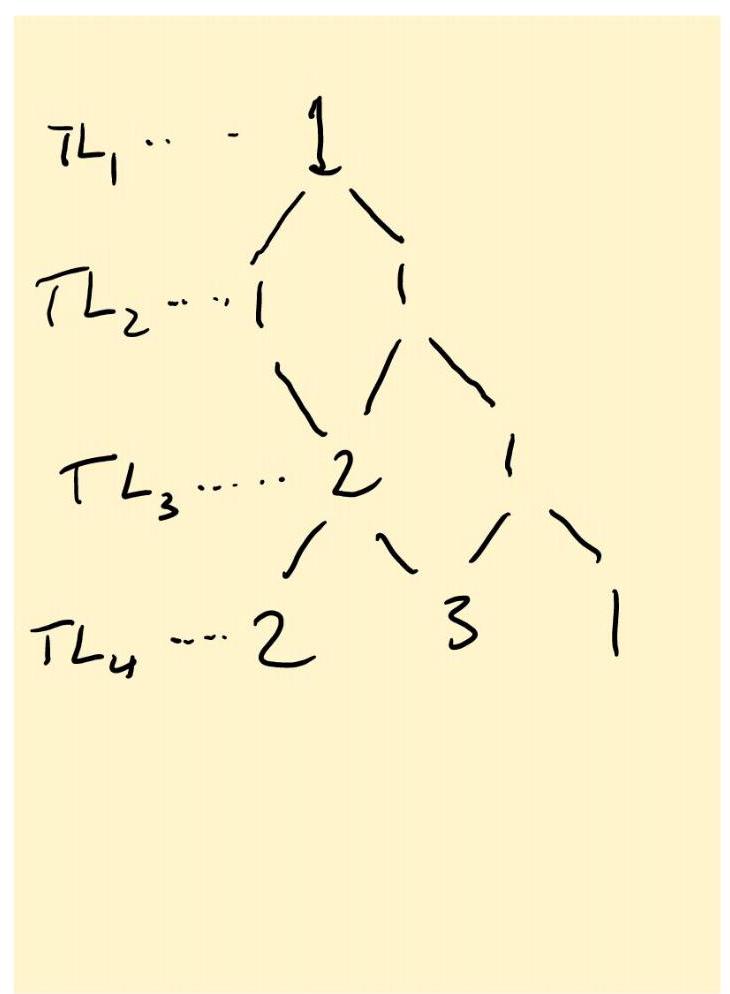 TL₁ ... - 1
TL₂ ..... 1 1
TL₃ ...... 2 1
TL₄ ..... 2 3 1